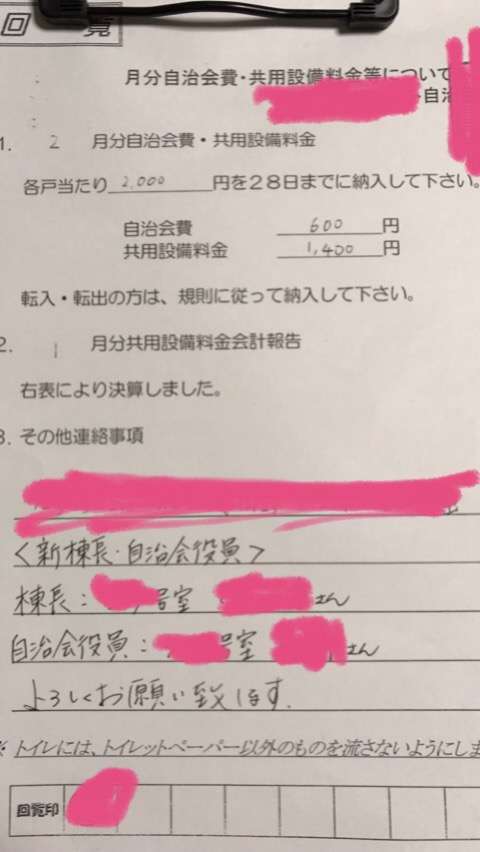 回覧
月分自治会費・共用設備料金等について
自治
1. 2 月分自治会費・共用設備料金
各戸当たり 2,000 円を28日までに納入して下さい。
自治会費 600 円
共用設備料金 1,400 円
転入・転出の方は、規則に従って納入して下さい。
2. 1 月分共用設備料金会計報告
右表により決算しました。
3. その他連絡事項
<新棟長・自治会役員>
棟長: 号室 さん
自治会役員: 号室 さん
よろしくお願い致します.
※ トイレには、トイレットペーパー以外のものを流さないようにしま
回覧印